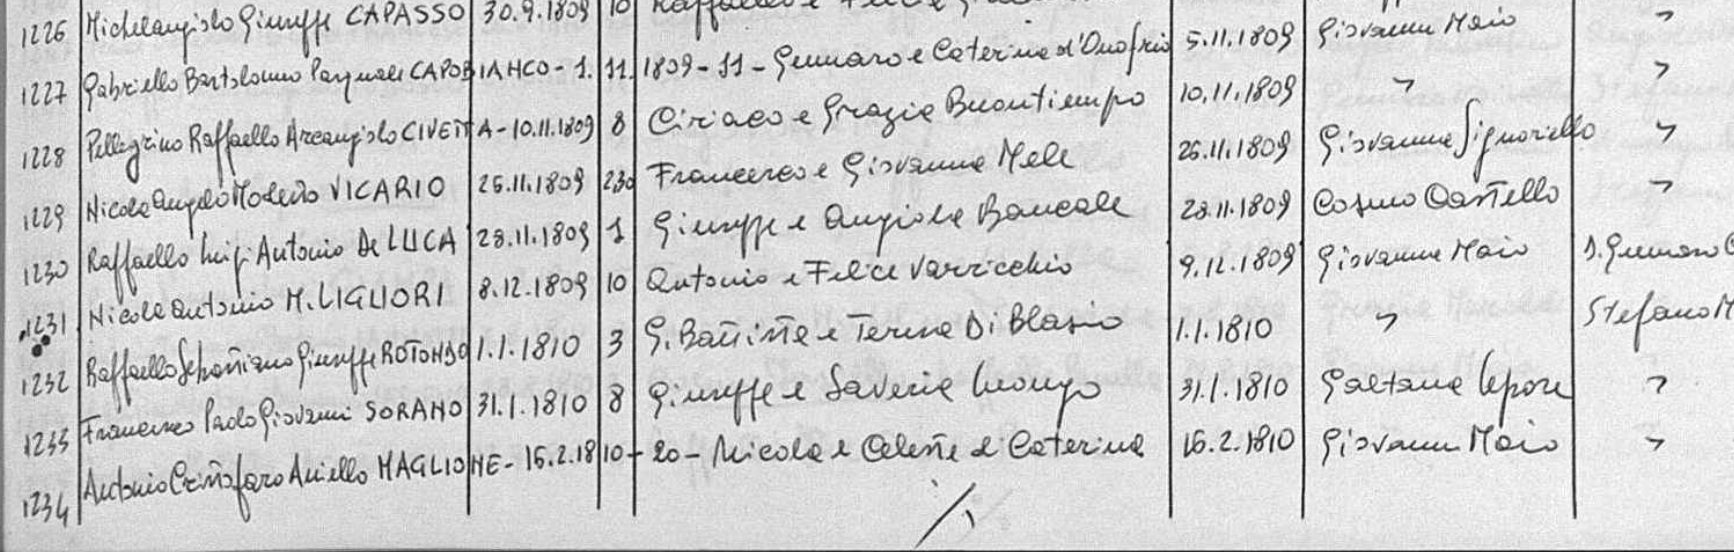 1226 Michelangiolo Giuseppe CAPASSO 30.9.1809 10 Raffaello e Felice 5.11.1809 Giovanni Maio "
1227 Gabriello Bartolomeo Pasquale CAPOBIANCO - 1.11.1809 - 11 - Gennaro e Caterina d'Onofrio 10.11.1809 " "
1228 Pellegrino Raffaello Arcangiolo CIVETTA - 10.11.1809 8 Ciriaco e Grazia Buontiempo 26.11.1809 Giovanna Signoriello "
1229 Nicola Angelo VICARIO 26.11.1809 2,30 Francesco e Giovanna Mele 28.11.1809 Cosmo Castello "
1230 Raffaello Luigi Antonio De LUCA 28.11.1809 1 Giuseppe e Angiola Bancale 9.12.1809 Giovanna Maio D. Gennaro
1231 Nicola Antonio M. LIGUORI 8.12.1809 10 Antonio e Felice Varricchio 1.1.1810 " Stefano M
1232 Raffaello Sebastiano Giuseppe ROTONDO 1.1.1810 3 G. Battista e Teresa Di Blasio 31.1.1810 Gaetana Lepore "
1233 Francesco Paolo Giovanni SORANO 31.1.1810 8 Giuseppe e Saveria Luongo 16.2.1810 Giovanni Maio "
1234 Antonio Cristofaro Aniello MAGLIONE - 16.2.1810 - 20 - Nicola e Celeste di Caterina